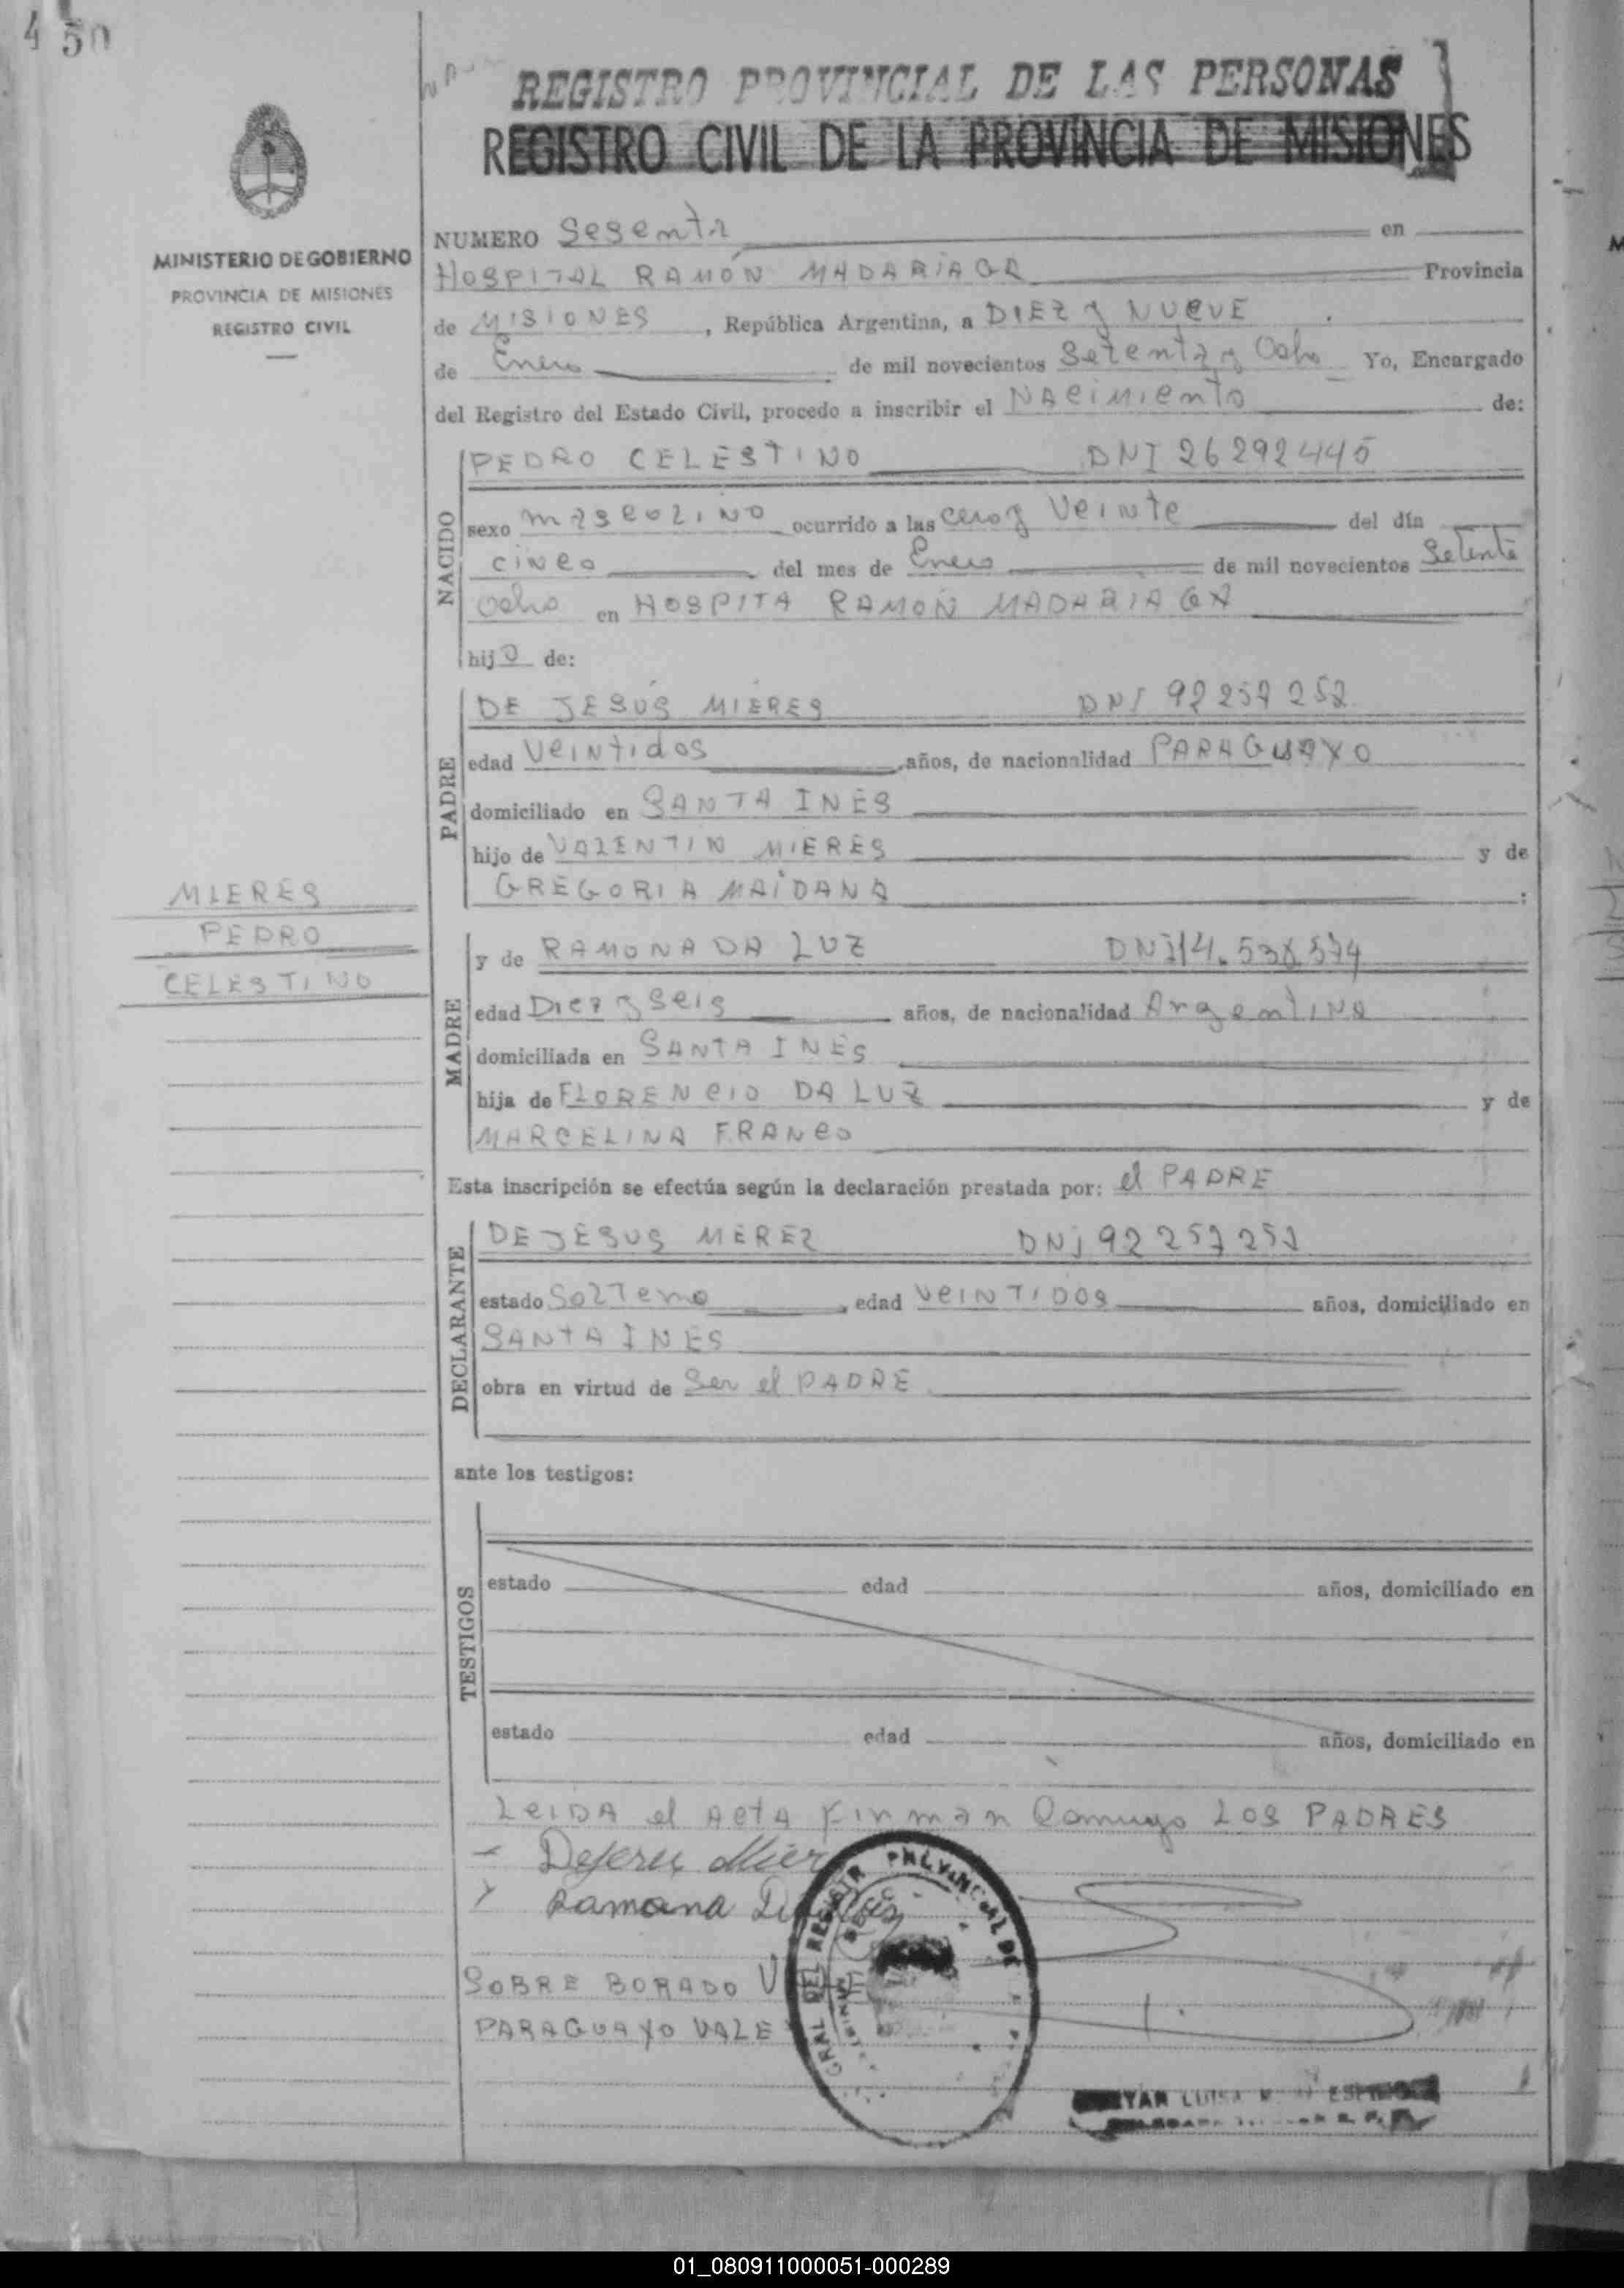 4 50
REGISTRO PROVINCIAL DE LAS PERSONAS
REGISTRO CIVIL DE LA PROVINCIA DE MISIONES
MINISTERIO DE GOBIERNO
PROVINCIA DE MISIONES
REGISTRO CIVIL
NUMERO Sesenta en
HOSPITAL RAMÓN MADARIAGA Provincia
de MISIONES, República Argentina, a DIEZ y NUEVE
de Enero de mil novecientos Setenta y Ocho Yo, Encargado
del Registro del Estado Civil, procedo a inscribir el NAcimiento de:
NACIDO
PEDRO CELESTINO DNI 26292445
sexo masculino ocurrido a las cero y Veinte del día
cinco del mes de Enero de mil novecientos Setenta
Ocho en HOSPITA RAMON MADARIAGA
hijo de:
PADRE
DE JESÚS MIERES DNI 92257252
edad Veintidos años, de nacionalidad PARAGUAYO
domiciliado en SANTA INÉS
hijo de VALENTIN MIERES y de
GREGORIA MAIDANA :
MIERES
PEDRO
CELESTINO
MADRE
y de RAMONA DA LUZ DNI 14.538.574
edad Diez y seis años, de nacionalidad Argentina
domiciliada en SANTA INÉS
hija de FLORENCIO DA LUZ y de
MARCELINA FRANCO
Esta inscripción se efectúa según la declaración prestada por: el PADRE
DECLARANTE
DE JESUS MEREZ DNI 92257252
estado Soltero, edad VEINTIDOS años, domiciliado en
SANTA INÉS
obra en virtud de Ser el PADRE
ante los testigos:
TESTIGOS
estado edad años, domiciliado en
estado edad años, domiciliado en
LEIDA el ACTA Firman Conmigo LOS PADRES
Dejesus Mier
Ramona Da
SOBRE BORADO
PARAGUAYO VALE
GRAL DEL REGISTR PROVINCIAL DE
LUISA
01_080911000051-000289